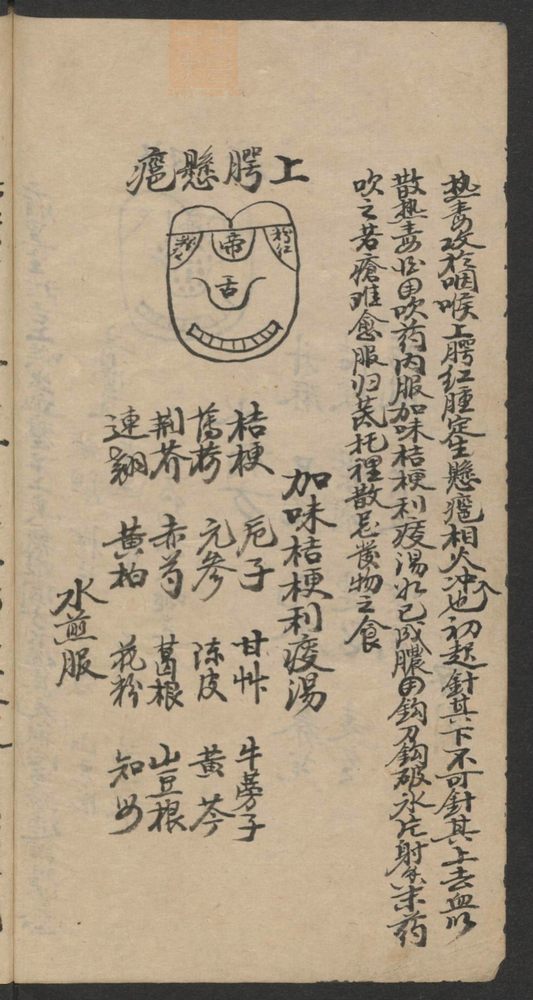 热毒攻於咽喉上腭红腫定生懸癰相火冲也初起針其下不可針其上去血以
散热毒後用吹药内服加味桔梗利痰湯如已成膿用鈎刀鈎破冰片射香末药
吹之若瘡难愈服归芪托裡散忌發物之食
上腭懸癰
粉红
帝
舌
加味桔梗利痰湯
桔梗 卮子 甘艸 牛蒡子
薄荷 元參 陳皮 黄芩
荆芥 赤芍 葛根 山豆根
連翹 黄柏 花粉 知母
水煎服